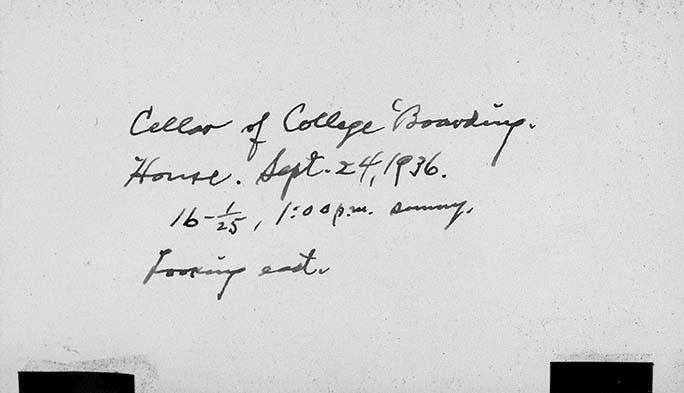 Cellar of College Boarding.
House. Sept. 24, 1936.
16 - 1/25, 1:00 p.m. sunny.
Looking east.